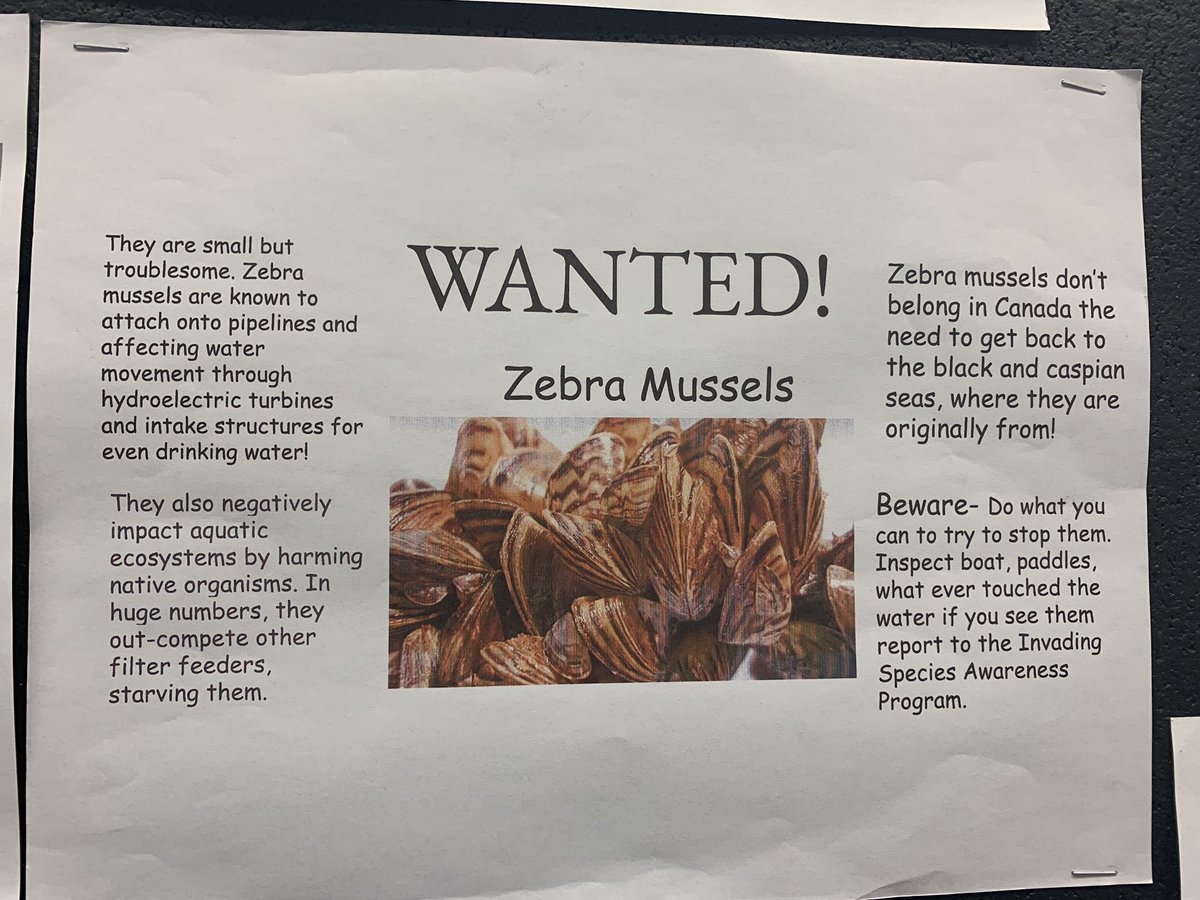 WANTED!
Zebra Mussels
They are small but
troublesome. Zebra
mussels are known to
attach onto pipelines and
affecting water
movement through
hydroelectric turbines
and intake structures for
even drinking water!
They also negatively
impact aquatic
ecosystems by harming
native organisms. In
huge numbers, they
out-compete other
filter feeders,
starving them.
Zebra mussels don't
belong in Canada the
need to get back to
the black and caspian
seas, where they are
originally from!
Beware- Do what you
can to try to stop them.
Inspect boat, paddles,
what ever touched the
water if you see them
report to the Invading
Species Awareness
Program.